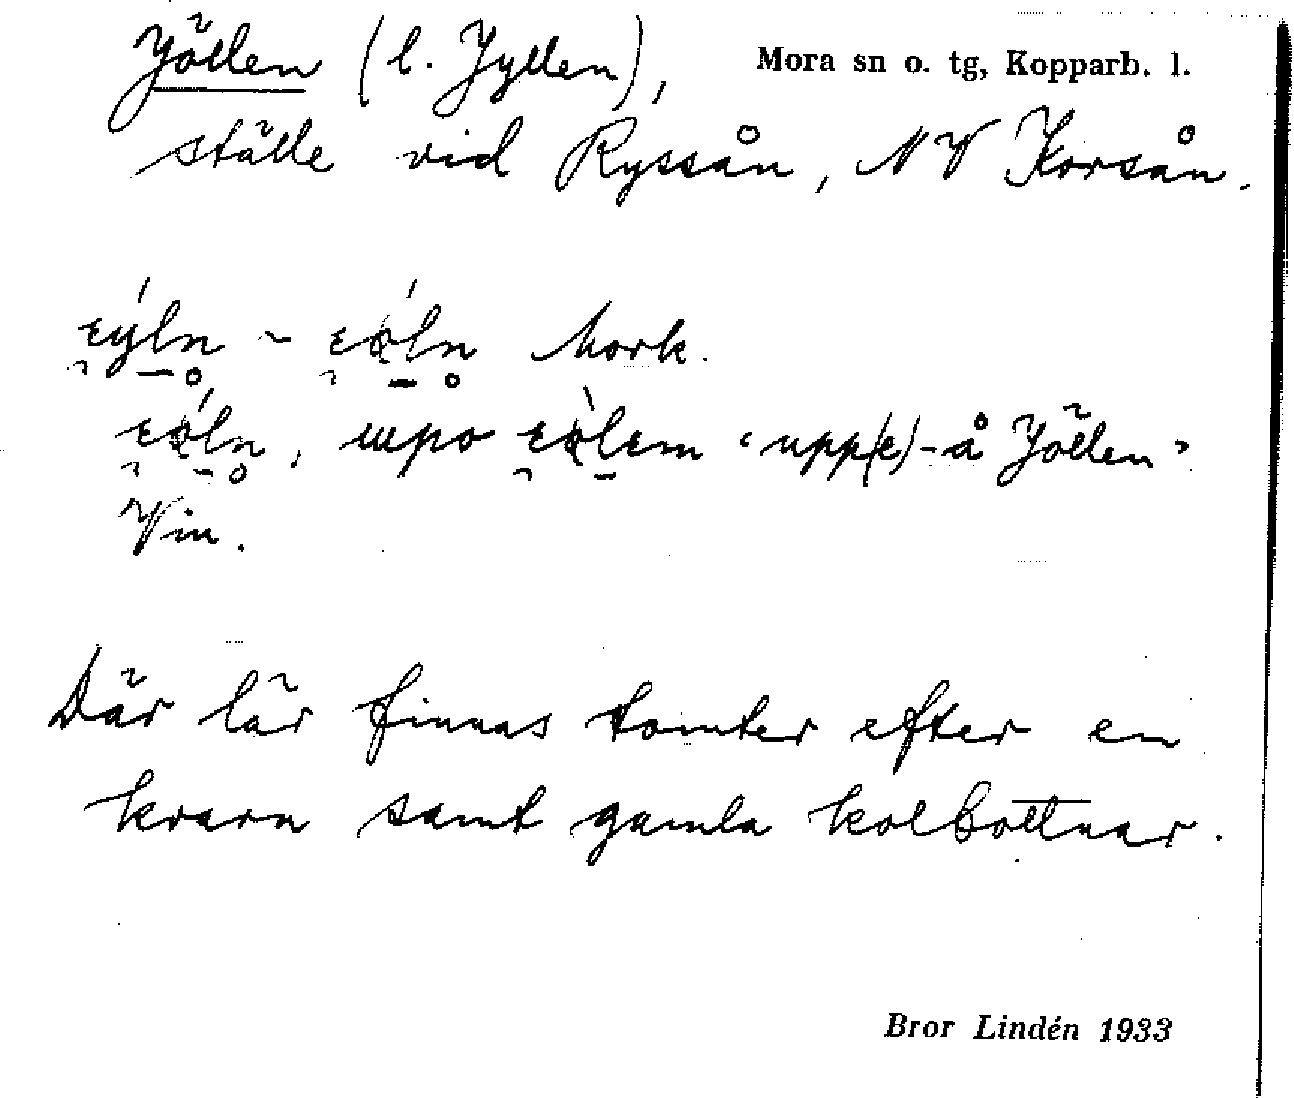 Jöllen (l. Jyllen), Mora sn o. tg, Kopparb. l.
ställe vid Ryssån, NV Korsån.
Mork.
"upp(e)-å Jöllen"
Vin.
Där lär finnas tomter efter en
kvarn samt gamla kolbottnar.
Bror Lindén 1933